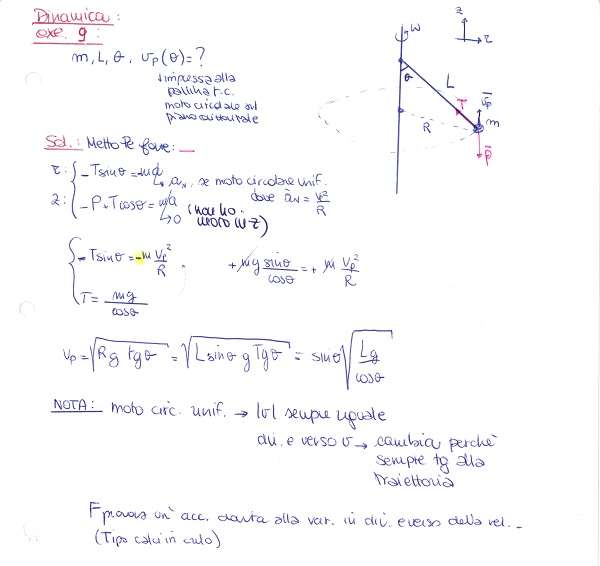 Dinamica:
exe. 9:
m, L, θ, vp(θ) = ?
impressa alla
pallina t.c.
moto circolare sul
piano orizzontale
z
r
ω
θ
L
T
vp
m
R
P
Sol.: Metto le forze:
r: { -T sinθ = ma → aN, se moto circolare unif.
dove aN = v²/R
z: { -P + T cosθ = ma → 0 (non ho
moto in z)
{ -T sinθ = -m vp²/R
+ mg sinθ/cosθ = + m vp²/R
T = mg/cosθ
vp = √(R g tgθ) = √(L sinθ g Tgθ) = sinθ √(Lg/cosθ)
NOTA: moto circ. unif. → |v| sempre uguale
dir. e verso v → cambia perchè
sempre tg alla
traiettoria
F provoca un' acc. dovuta alla var. in dir. e verso della vel.
(Tipo calci in culo)